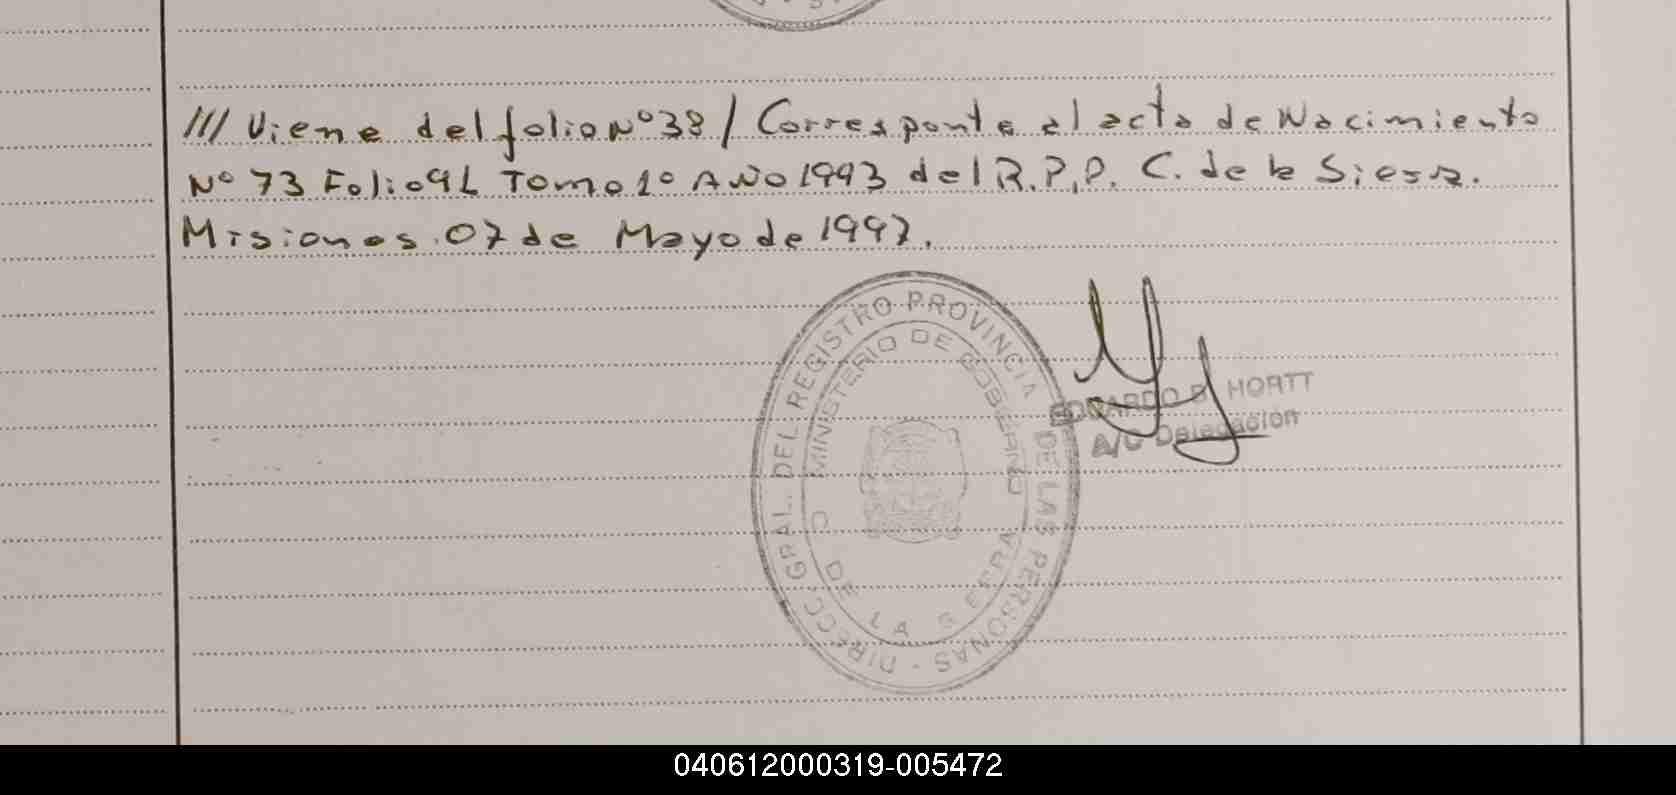 /// Viene del folio Nº 38 / Corresponte al acta de Nacimiento
Nº 73 Folio 91 Tomo 1º AÑO 1993 del R.P.P. C. de la Sierra.
Misiones. 07 de Mayo de 1997.
DIRECC. GRAL. DEL REGISTRO PROVINCIAL DE LAS PERSONAS -
MINISTERIO DE GOBIERNO
C. DE LA SIERRA
EDUARDO B. HORTT
A/C Delegación
040612000319-005472